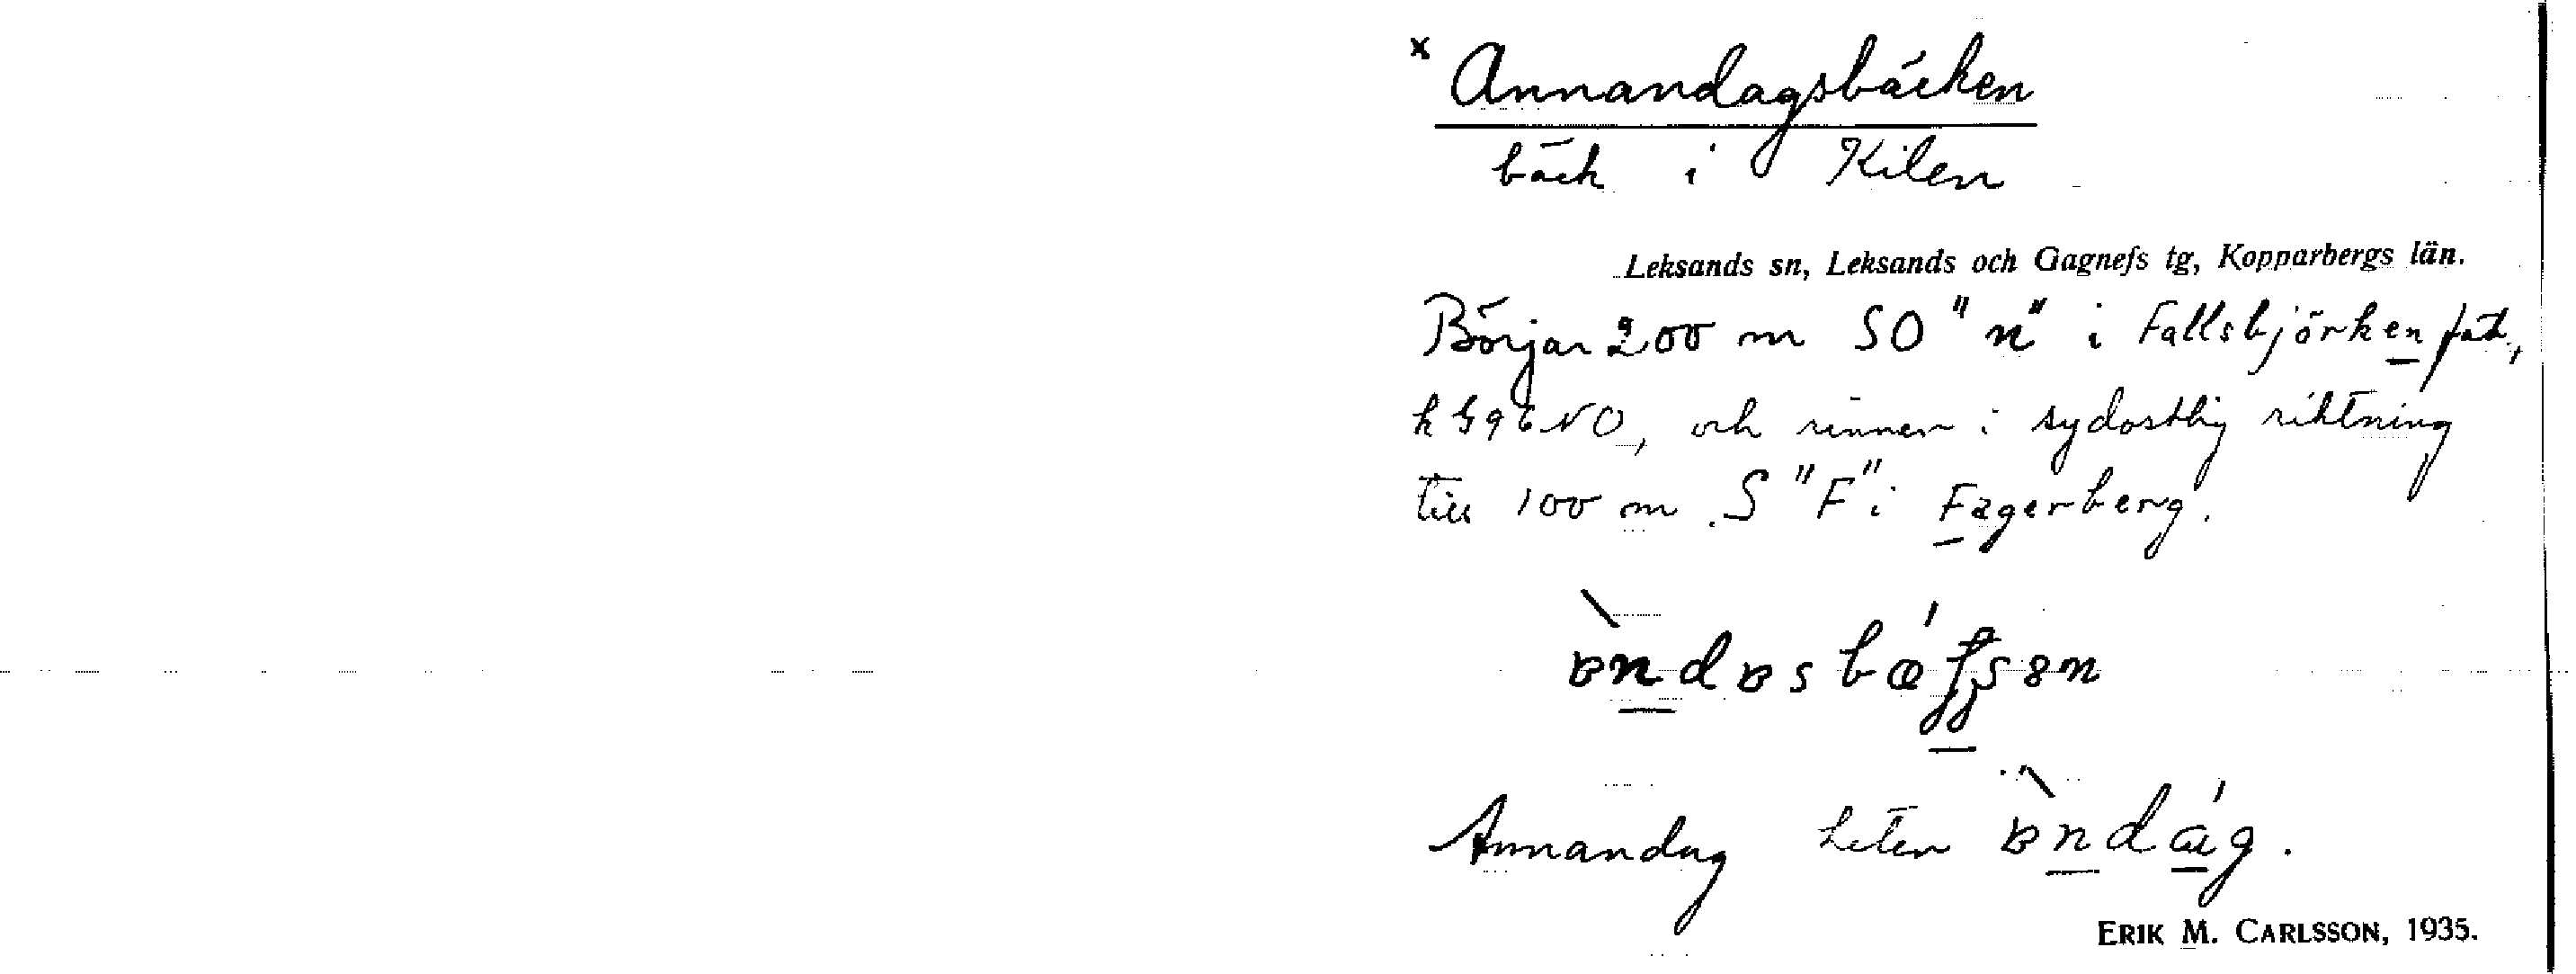 x Annandagsbäcken
bäck i Kilen
Leksands sn, Leksands och Gagnefs tg, Kopparbergs län.
Börjar 200 m SO "n" i Fallsbjörken fäb.,
k G96NO, och rinner i sydostlig riktning
till 100 m S "F" i Fagerberg.
Annandag heter
ERIK M. CARLSSON, 1935.